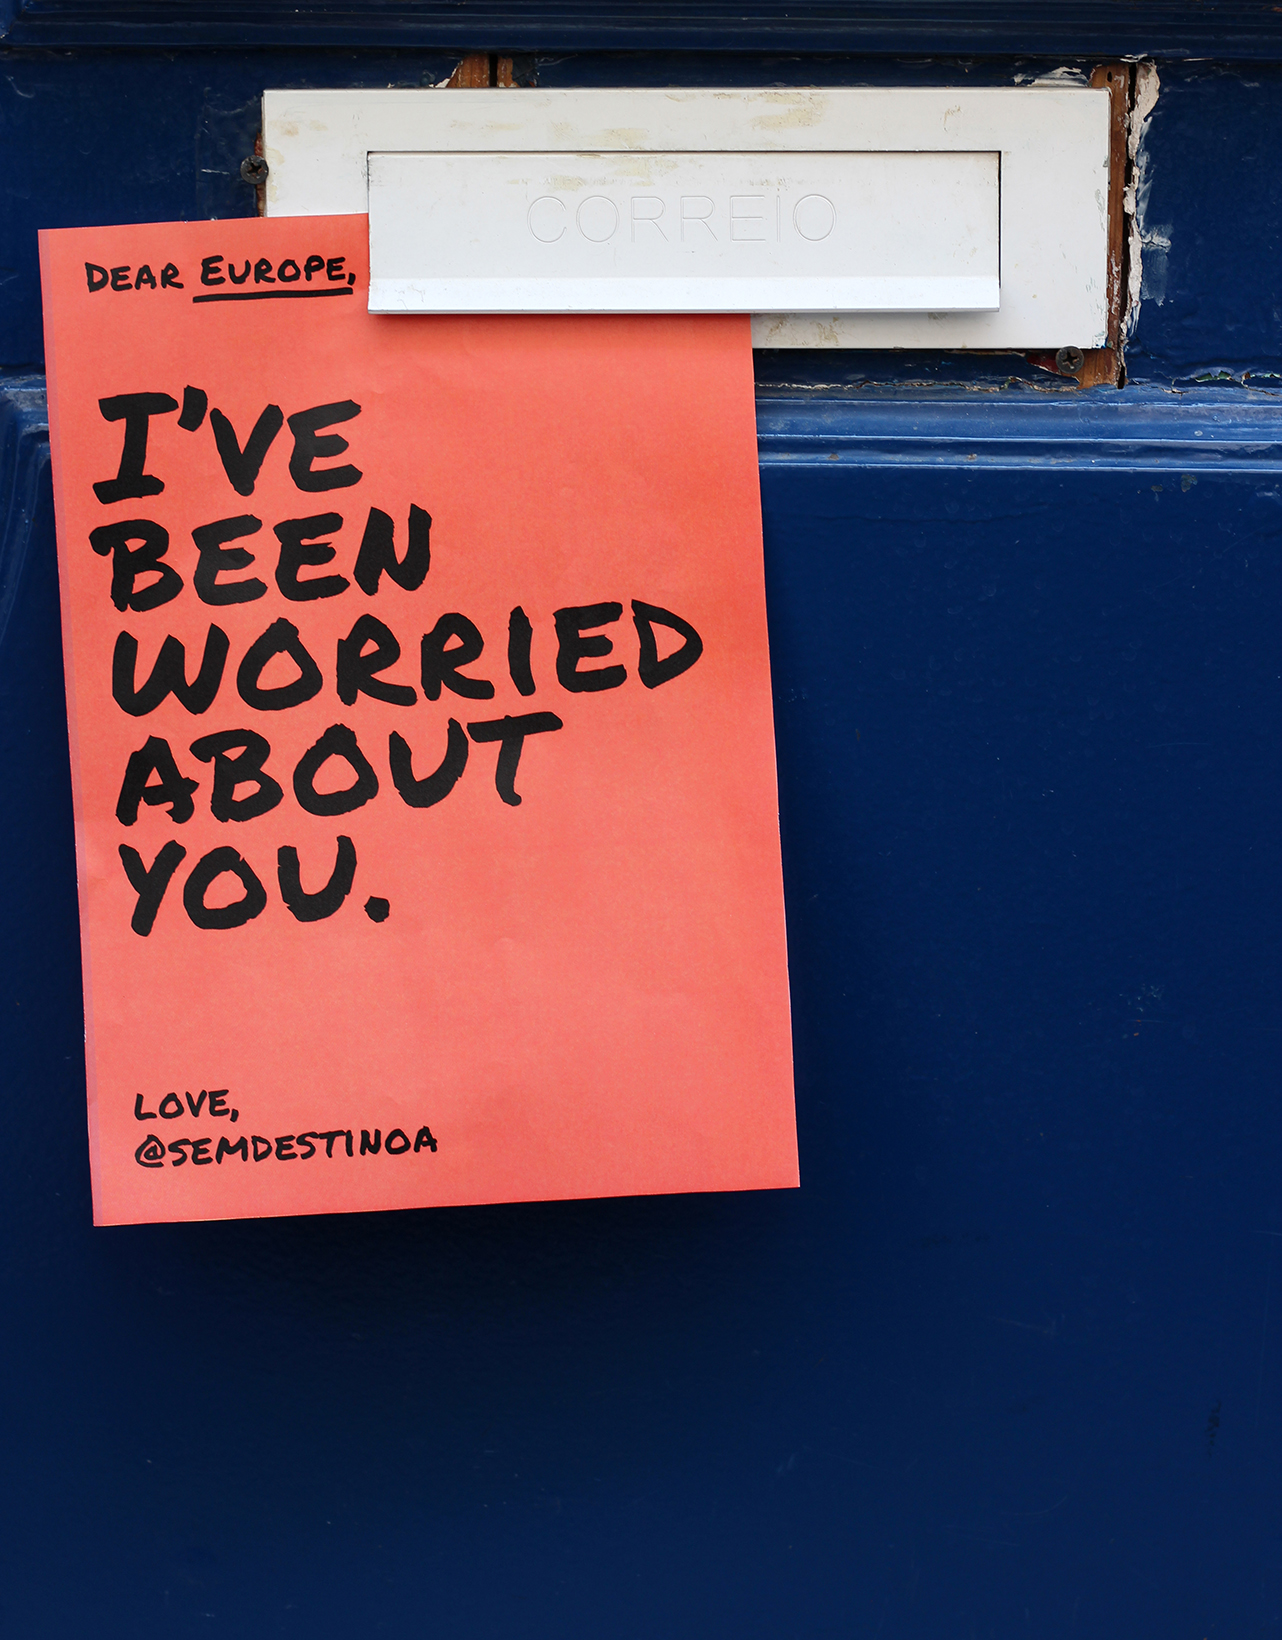 CORREIO
DEAR EUROPE,
I'VE
BEEN
WORRIED
ABOUT
YOU.
LOVE,
@SEMDESTINOA